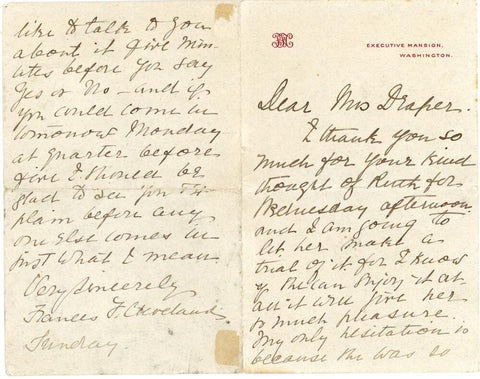 EXECUTIVE MANSION,
WASHINGTON.
Dear Mrs Draper.
I thank you so
much for your kind
thought of Ruth for
Wednesday afternoon
and I am going to
let her make a
trial of it for I know
if she can enjoy it at
all it will give her
so much pleasure.
My only hesitation is
because she was so
like to talk to you
about it five min
utes before you say
Yes or No - and if
you could come in
tomorrow Monday
at quarter before
five I should be
glad to see you & ex
plain before any
one else comes in
just what I mean
Very Sincerely
Frances F. Cleveland
Sunday.